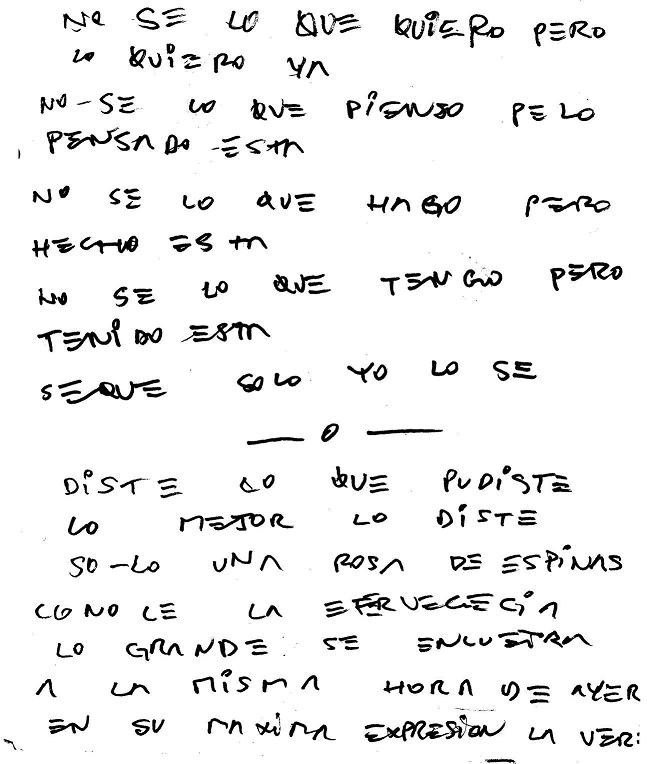 NO SE LO QUE QUIERO PERO
LO QUIERO YA
NO-SE LO QUE PIENSO PELO
PENSADO ESTA
NO SE LO QUE HAGO PERO
HECHO ESTA
NO SE LO QUE TENGO PERO
TENIDO ESTA
SEQUE SOLO YO LO SE
— 0 —
DISTE LO QUE PUDISTE
LO MEJOR LO DISTE
SO-LO UNA ROSA DE ESPINAS
CONOCE LA
LO GRANDE SE ENCUETRA
A LA MISMA HORA DE AYER
EN SU MAXIMA EXPRESION LA VER: